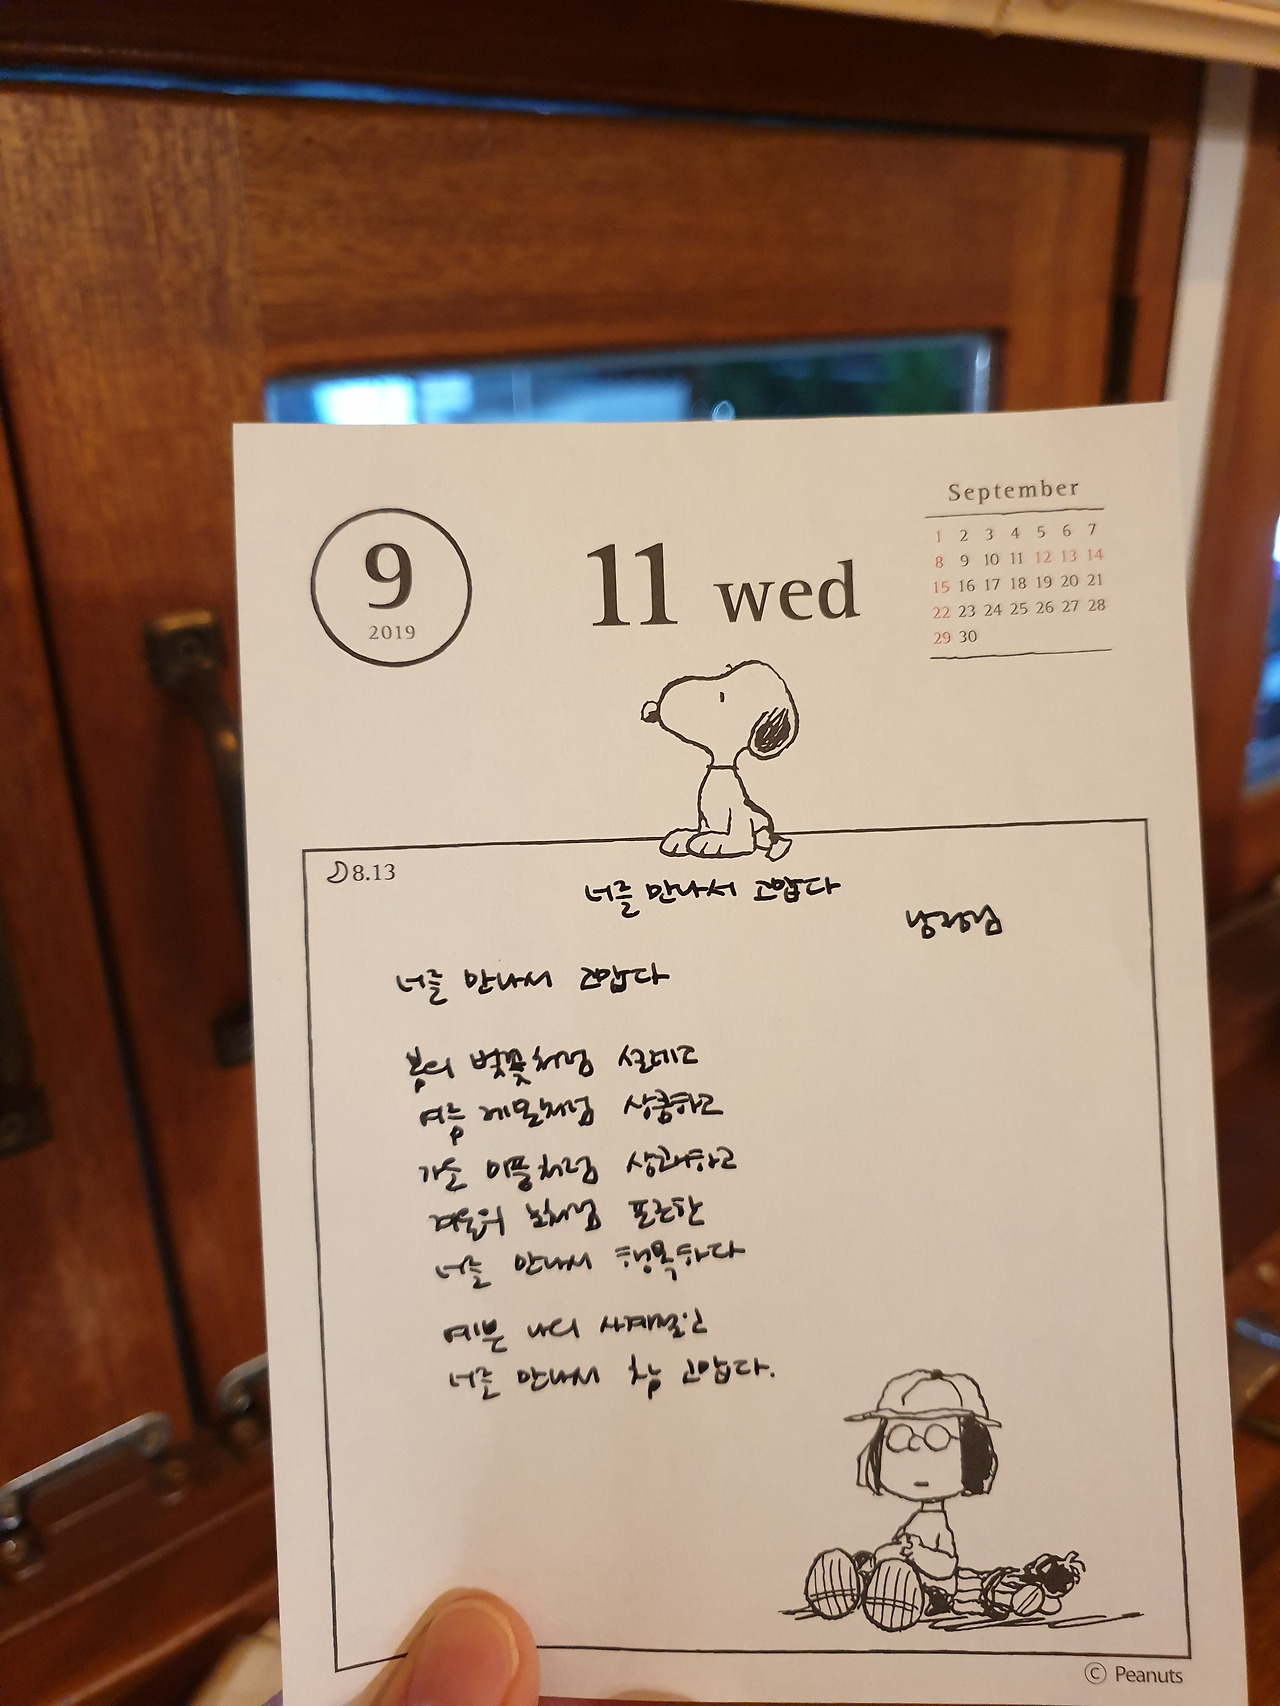 9
2019
11 wed
September
1 2 3 4 5 6 7
8 9 10 11 12 13 14
15 16 17 18 19 20 21
22 23 24 25 26 27 28
29 30
8.13
너를 만나서 고맙다
너를 만나서 고맙다
봄의 벚꽃처럼 설레고
여름 레몬처럼 상큼하고
가을 이플처럼 상쾌하고
겨울의 눈처럼 포근한
너를 만나서 행복하다
예쁜 나의 사계절.
너를 만나서 참 고맙다.
© Peanuts